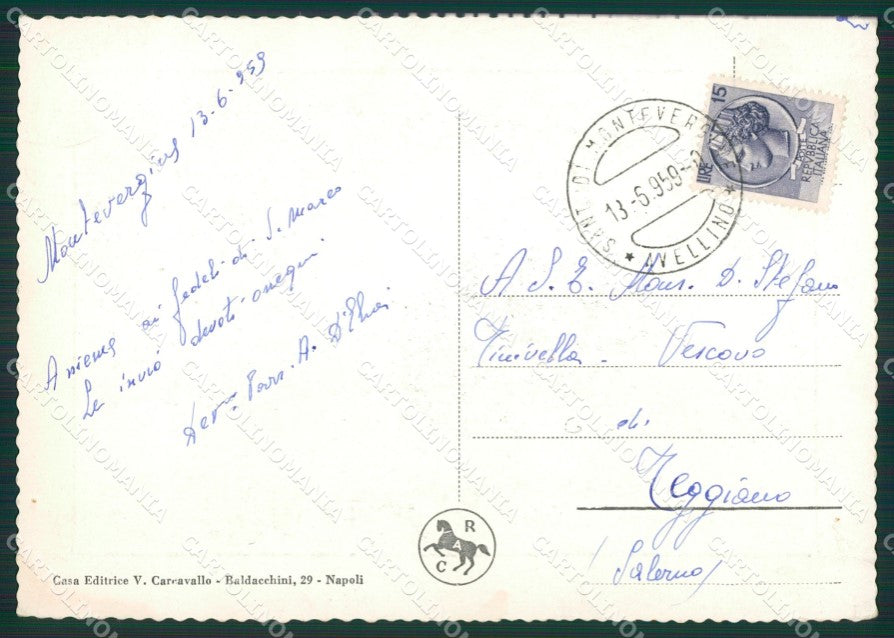 Montevergine 13-6-959
Assieme ai fedeli di S. Marco
Le invio devoti ossequi.
Dev.mo Parr. A. D'Elia
Casa Editrice V. Carcavallo - Baldacchini, 29 - Napoli
R A C
SANT. DI MONTEVERGINE
13-6-959
* AVELLINO *
LIRE 15
POSTE
REPVBBLICA
ITALIANA
A S. E. Mons. D. Stefano
Tinivella - Vescovo
di
Teggiano
(Salerno)
CARTOLINOMANIA